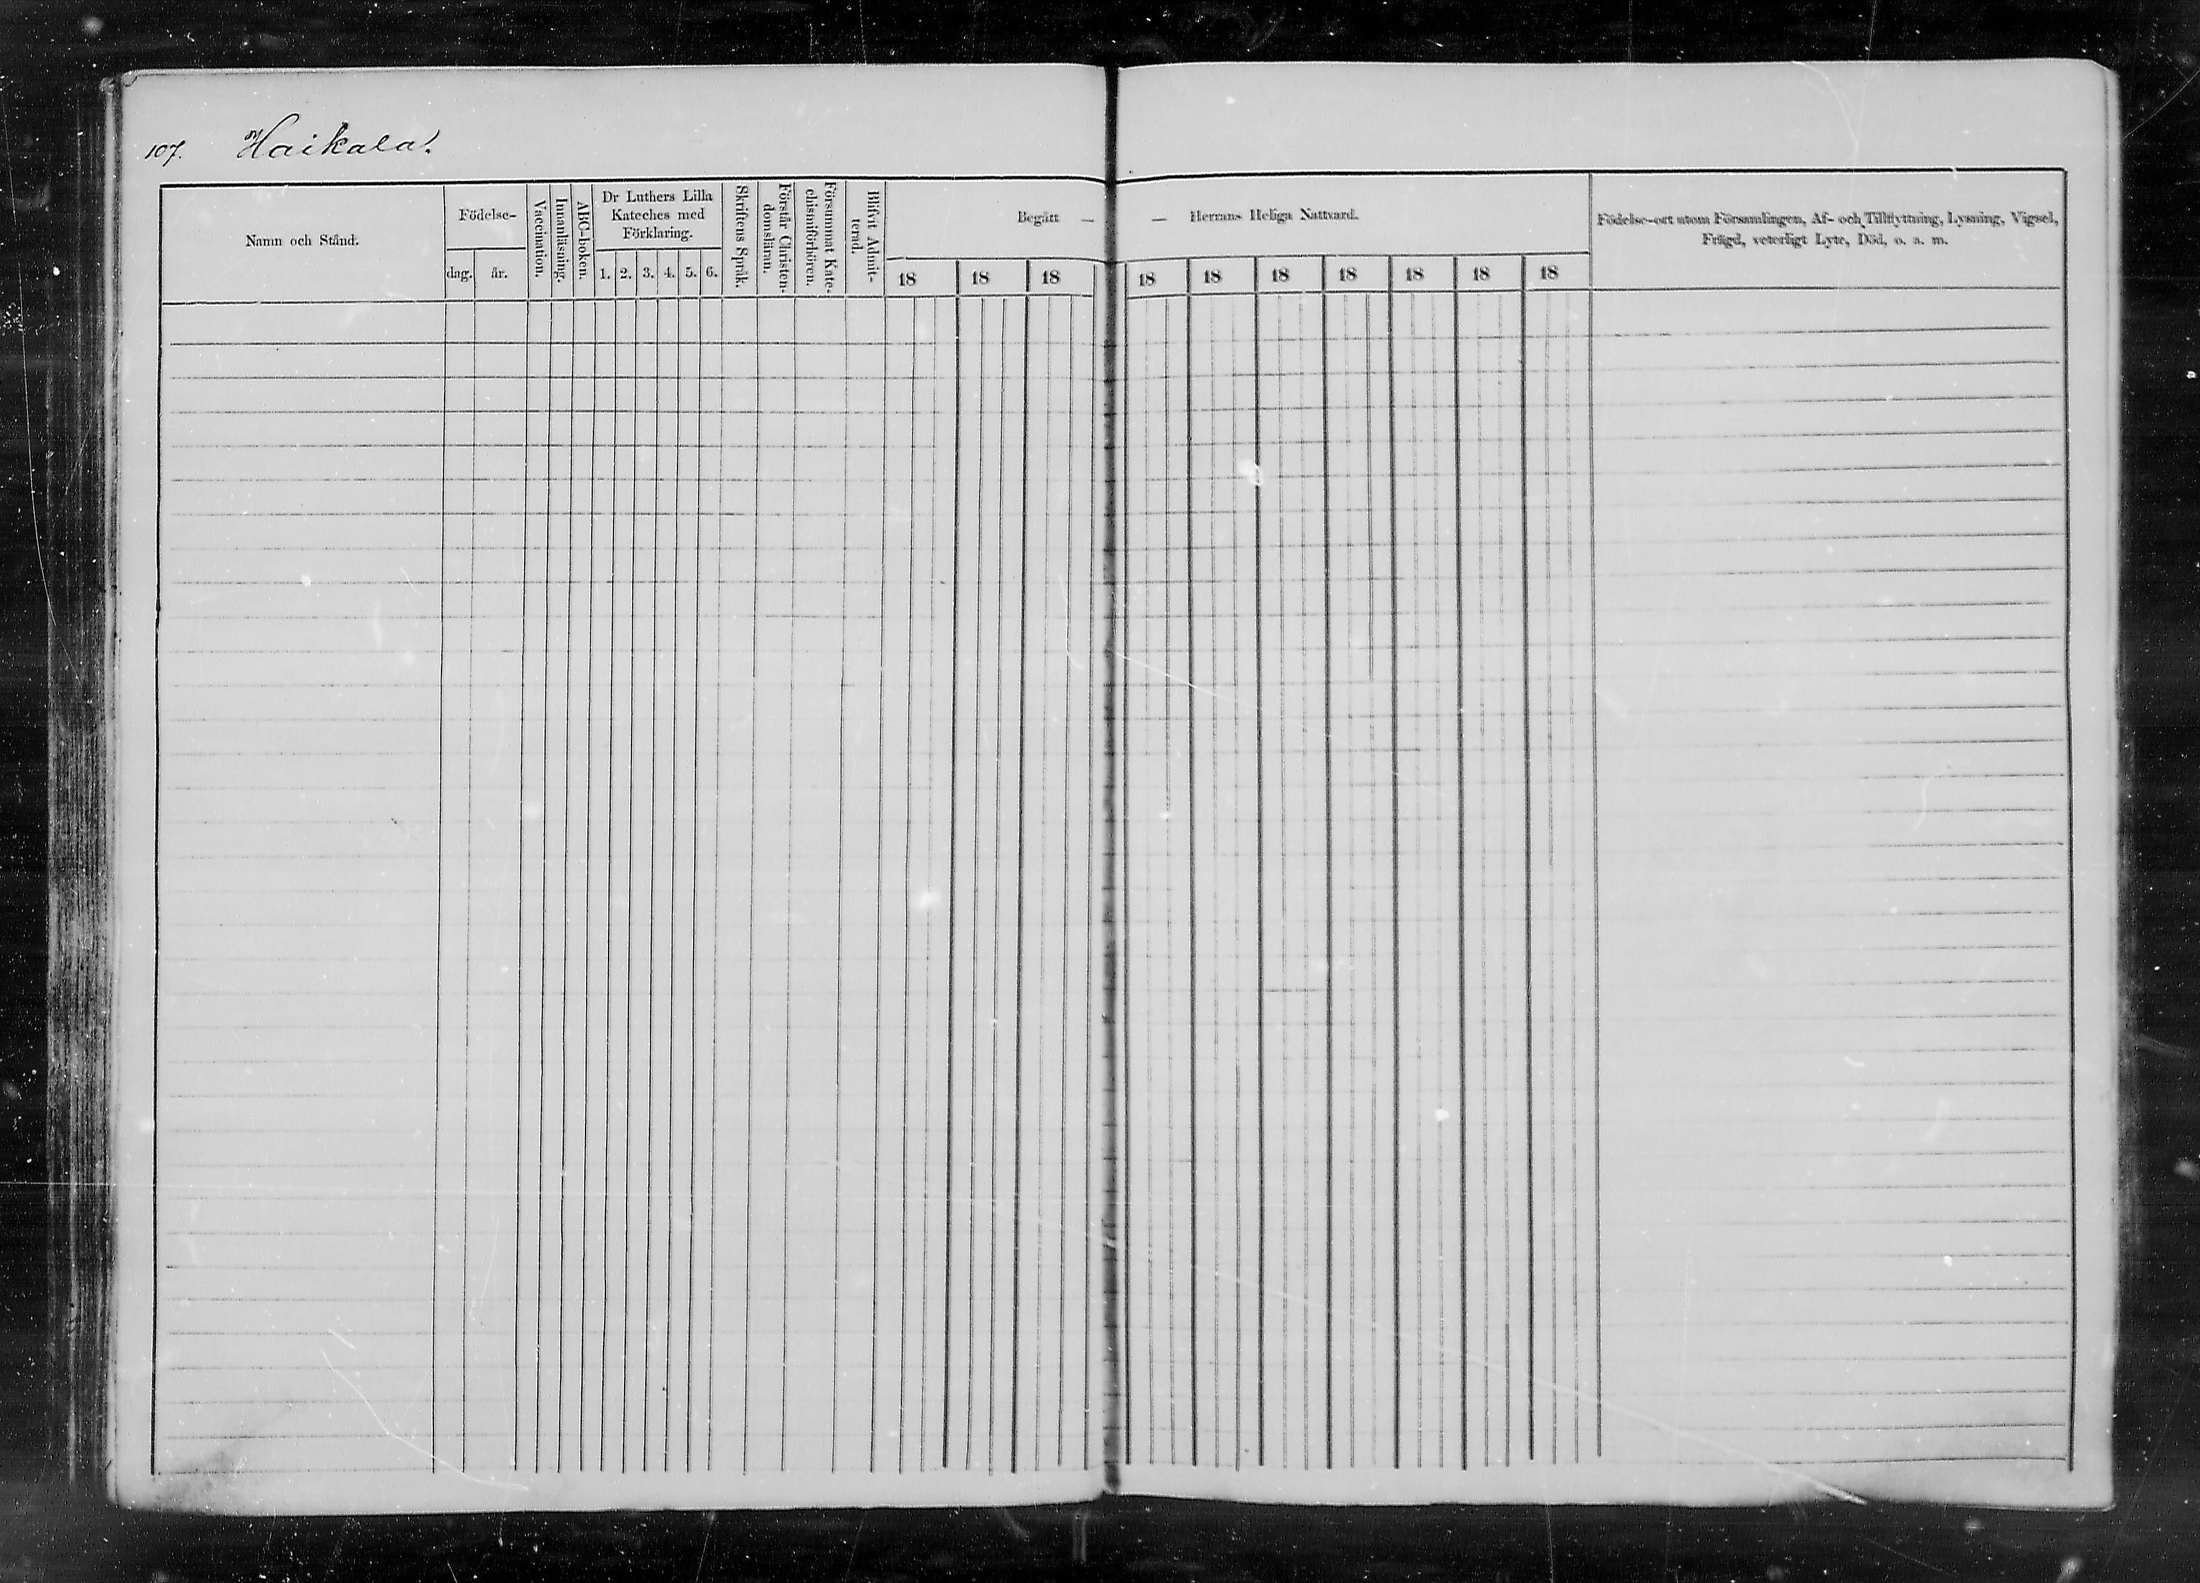 107. Haikala.
Namn och Stånd.
Födelse-
dag.
år.
Vaccination.
Innanläsning.
ABC-boken.
Dr Luthers Lilla
Kateches med
Förklaring.
1. 2. 3. 4. 5. 6.
Skriftens Språk.
Förstår Christen-
domsläran.
Försummat Kate-
chismiförhören.
Blifvit Admit-
terad.
Begått —
— Herrans Heliga Nattvard.
18 18 18 18 18 18 18 18 18 18
Födelse-ort utom Församlingen, Af- och Tillflyttning, Lysning, Vigsel,
Frägd, veterligt Lyte, Död, o. a. m.